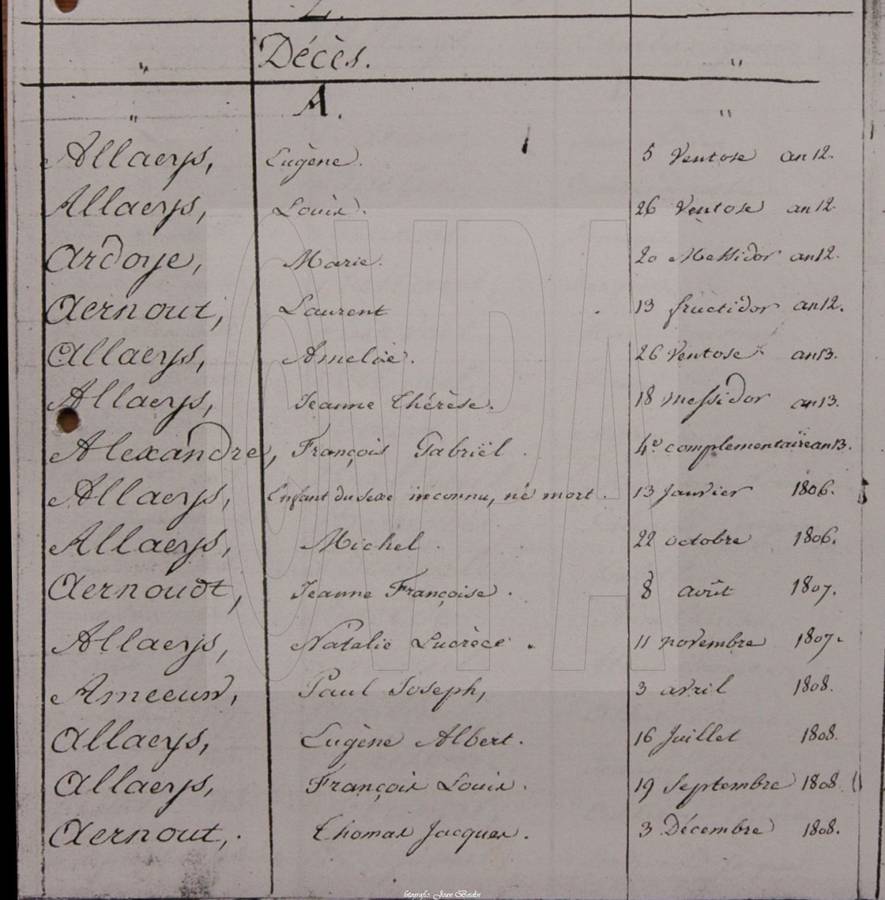 Z.
" Décès. "
" A. "
Allaeys, Eugène. 5 Ventose an 12.
Allaeys, Louis. 26 Ventose an 12.
Ardoye, Marie. 20 Messidor an 12.
Aernout, Laurent 13 fructidor an 12.
Allaeys, Ameloe. 26 Ventose an 13.
Allaeys, Jeanne Thérèse. 18 messidor an 13.
Alexandre, François Gabriël. 4e complementaire an 13.
Allaeys, Enfant du sexe inconnu, né mort. 13 Janvier 1806.
Allaeys, Michel. 22 octobre 1806.
Aernoudt, Jeanne Françoise. 8 août 1807.
Allaeys, Natalie Lucrèce. 11 novembre 1807.
Ameeuw, Paul Joseph, 3 avril 1808.
Allaeys, Eugène Albert. 16 Juillet 1808.
Allaeys, François Louis. 19 Septembre 1808
Aernout, Thomas Jacques. 3 Décembre 1808.
OVPA